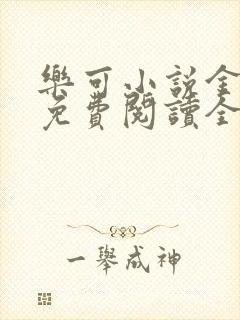 樂可小說全
免費閱讀全
一舉成神